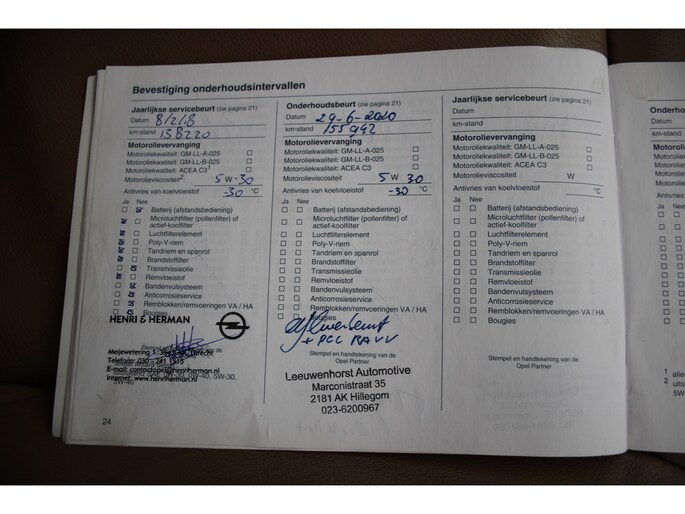 Bevestiging onderhoudsintervallen
Jaarlijkse servicebeurt (zie pagina 21)
Datum
km-stand 158220
Motorolievervanging
Motoroliekwaliteit: GM-LL-A-025
Motoroliekwaliteit: GM-LL-B-025
Motoroliekwaliteit: ACEA C3¹
Motorolieviscositeit²: 5 W-30
Antivries van koelvloeistof -30 °C
Ja Nee
Batterij (afstandsbediening)
Microluchtfilter (pollenfilter) of
actief-koolfilter
Luchtfilterelement
Poly-V-riem
Tandriem en spanrol
Brandstoffilter
Transmissieolie
Remvloeistof
Bandenvulsysteem
Anticorrosieservice
Remblokken/remvoeringen VA / HA
Bougies
HENRI & HERMAN
Meijewetering 1
Telefoon: 030 - 241
Internet: www.henriherman.nl
5W-40
24
Onderhoudsbeurt (zie pagina 21)
Datum 29-6-2020
km-stand 155942
Motorolievervanging
Motoroliekwaliteit: GM-LL-A-025
Motoroliekwaliteit: GM-LL-B-025
Motoroliekwaliteit: ACEA C3
Motorolieviscositeit 5 W 30
Antivries van koelvloeistof -30 °C
Ja Nee
Batterij (afstandsbediening)
Microluchtfilter (pollenfilter) of
actief-koolfilter
Luchtfilterelement
Poly-V-riem
Tandriem en spanrol
Brandstoffilter
Transmissieolie
Remvloeistof
Bandenvulsysteem
Anticorrosieservice
Remblokken/remvoeringen VA / HA
Bougies
Stempel en handtekening van de
Opel Partner
Leeuwenhorst Automotive
Marconistraat 35
2181 AK Hillegom
023-6200967
Jaarlijkse servicebeurt (zie pagina 21)
Datum
km-stand
Motorolievervanging
Motoroliekwaliteit: GM-LL-A-025
Motoroliekwaliteit: GM-LL-B-025
Motoroliekwaliteit: ACEA C3
Motorolieviscositeit W
Antivries van koelvloeistof °C
Ja Nee
Batterij (afstandsbediening)
Microluchtfilter (pollenfilter) of
actief-koolfilter
Luchtfilterelement
Poly-V-riem
Tandriem en spanrol
Brandstoffilter
Transmissieolie
Remvloeistof
Bandenvulsysteem
Anticorrosieservice
Remblokken/remvoeringen VA / HA
Bougies
Stempel en handtekening van de
Opel Partner
Datum
km-stand
Ja Nee